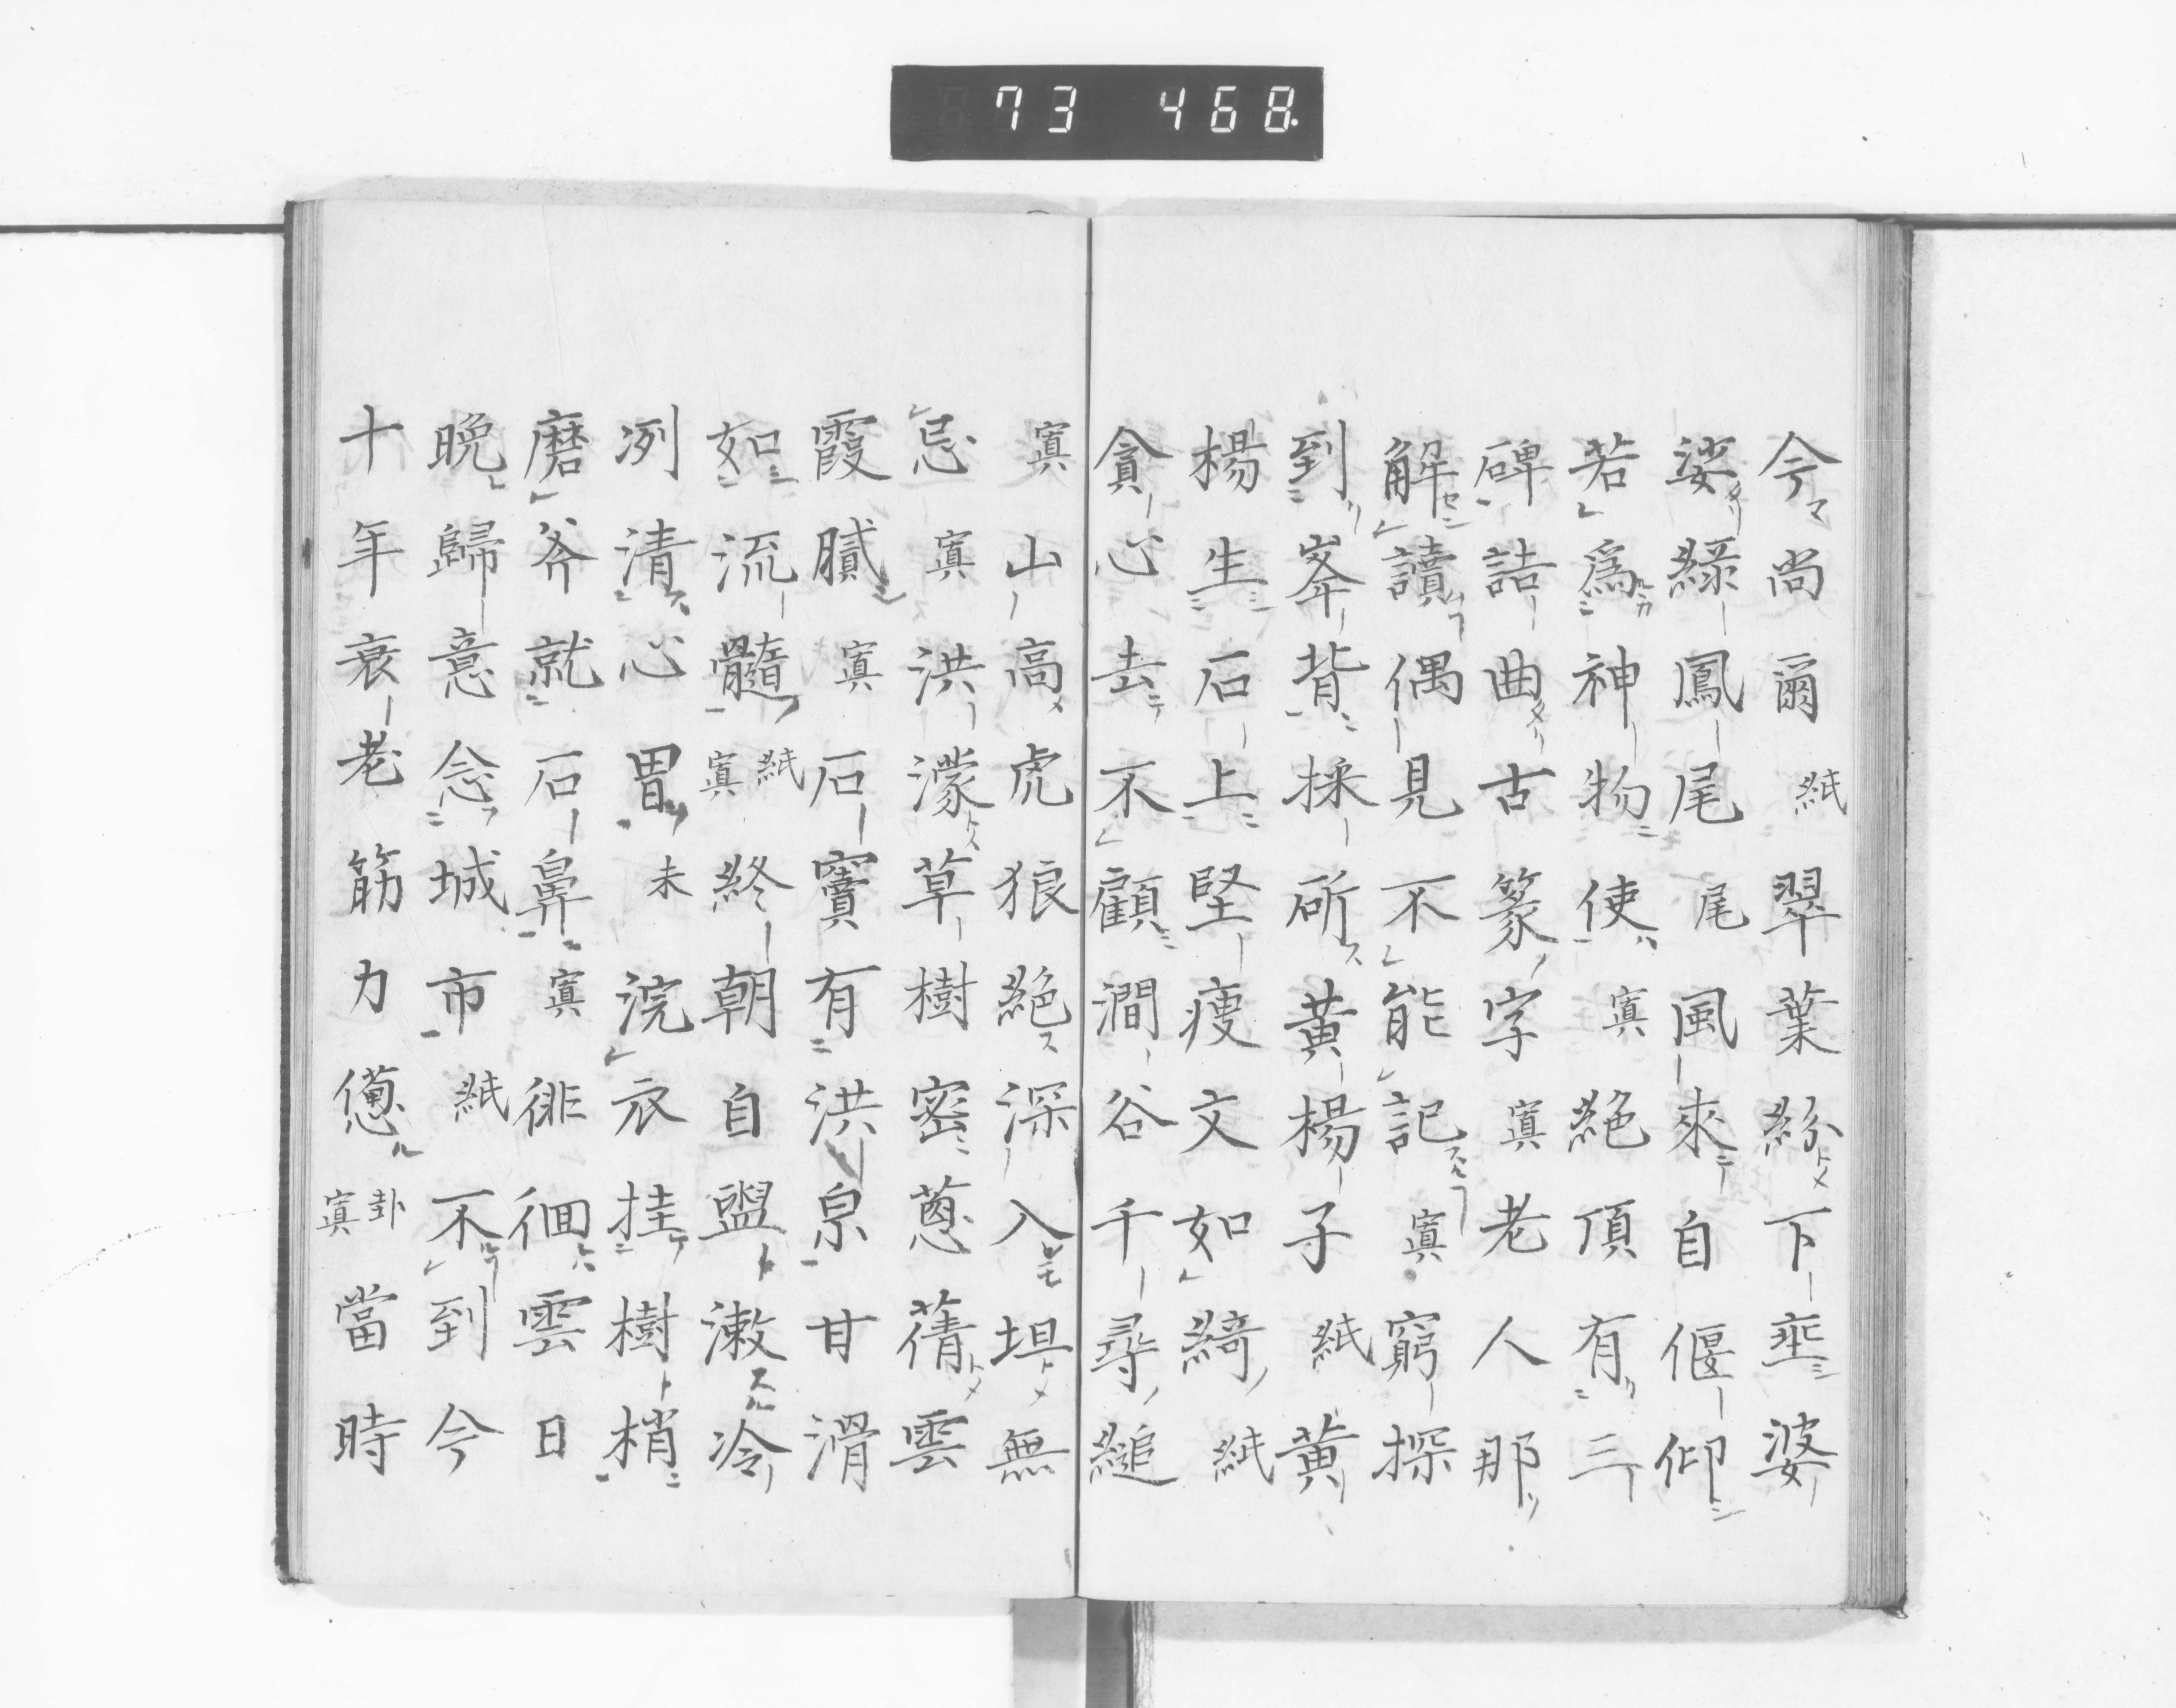 73 468.
今尚爾紙翠葉紛下垂婆
娑緑鳳尾尾風來自偃仰
若爲神物使寘絶頂有三
碑詰曲古篆字寘老人那
解讀偶見不能記寘窮探
到峯背採斫黃楊子紙黃
楊生石上堅瘦文如綺紙
貪心去不顧澗谷千尋縋
寘山高虎狼絶深入坦無
忌寘洪濛草樹密蔥蒨雲
霞膩寘石竇有洪泉甘滑
如流髓紙寘終朝自盥漱冷
冽清心胃未浣衣挂樹梢
磨斧就石鼻寘徘徊雲日
晩歸意念城市紙不到今
十年衰老筋力憊卦寘當時